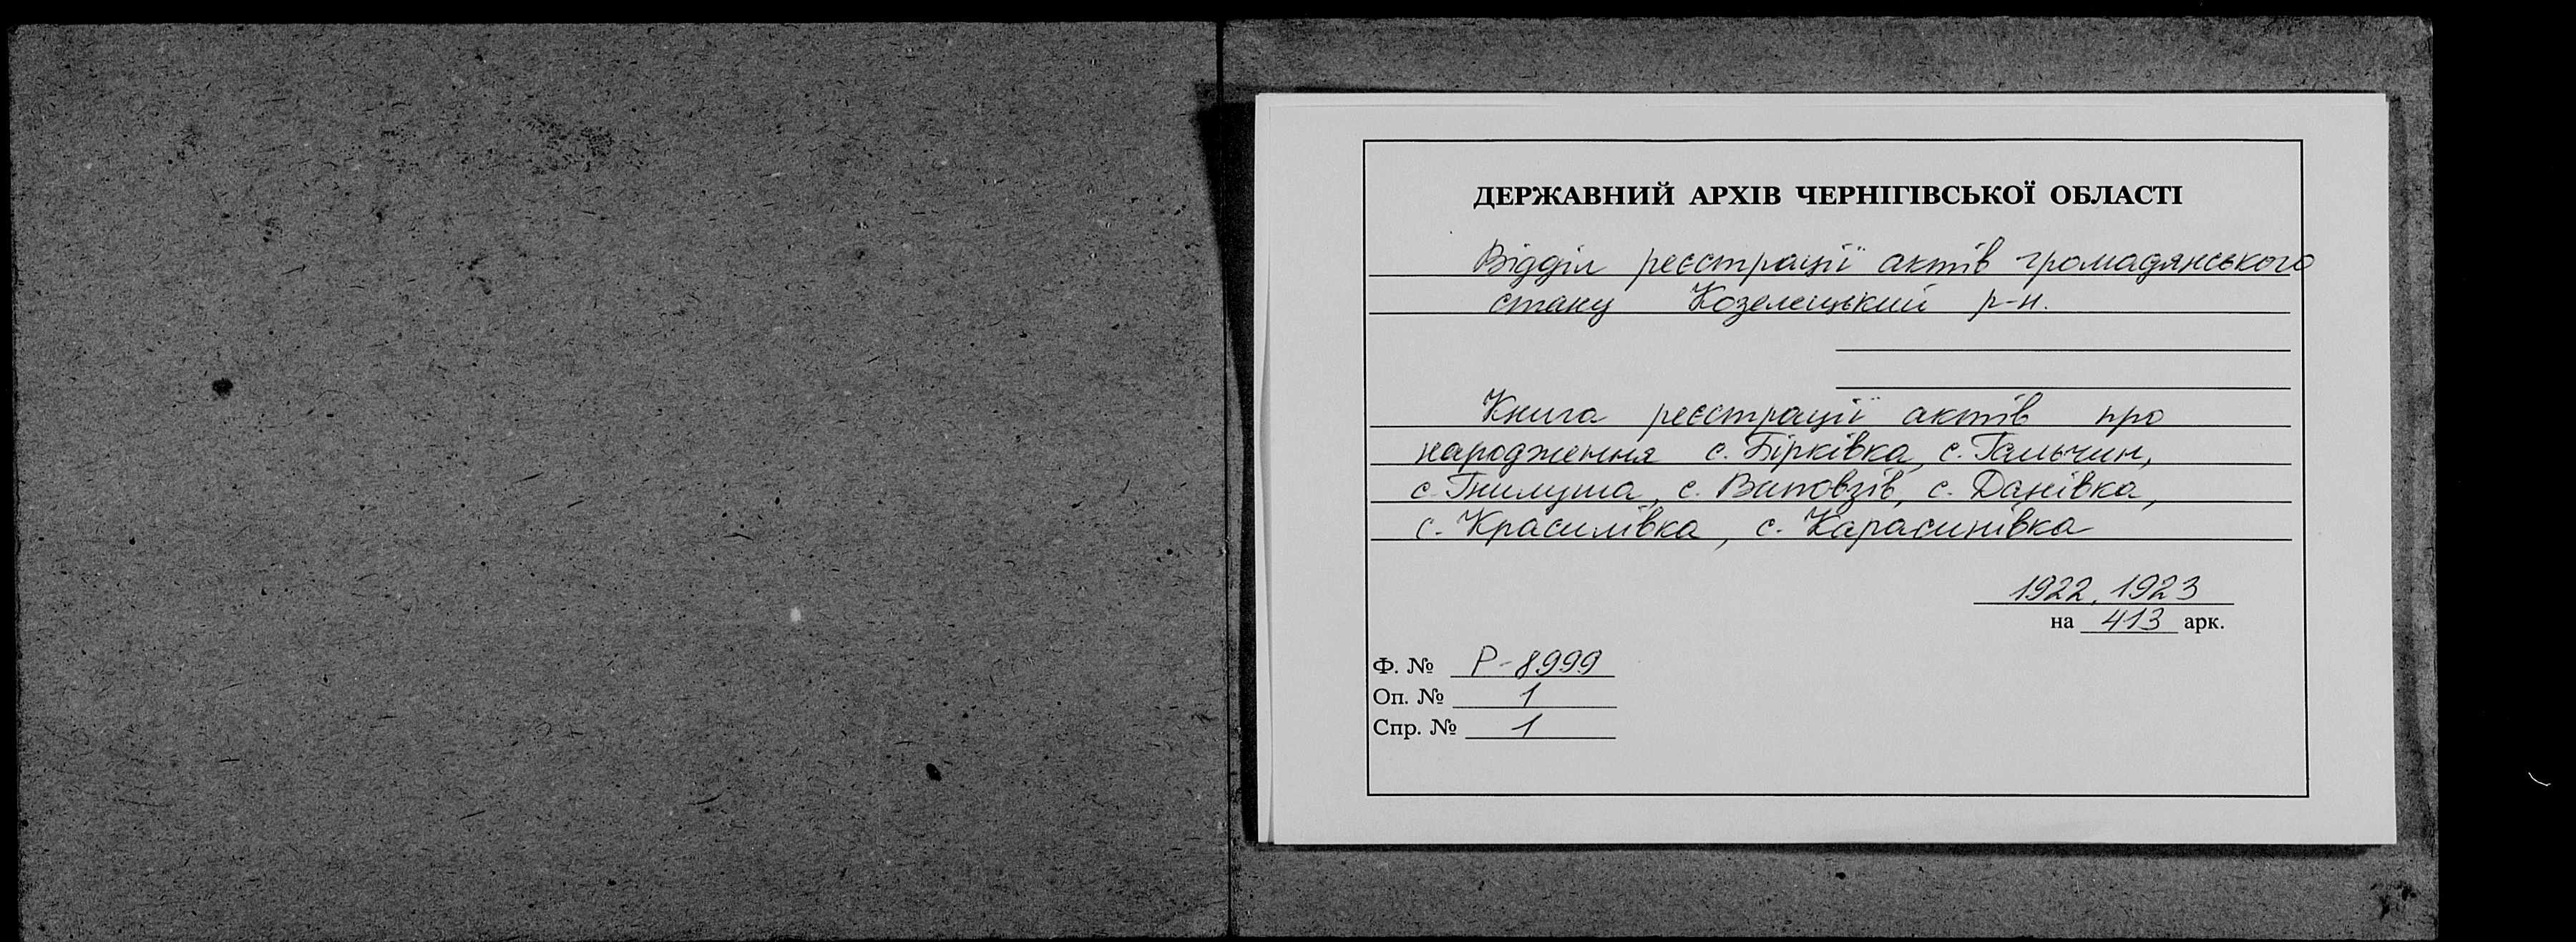 ДЕРЖАВНИЙ АРХІВ ЧЕРНІГІВСЬКОЇ ОБЛАСТІ
Відділ реєстрації актів громадянського
стану Козелецький р-н.
Книга реєстрації актів про
народження с. Бірківка, с. Гальчин,
с. Гнилуша, с. Виповзів, с. Данівка,
с. Красилівка, с. Карасинівка
1922, 1923
на 413 арк.
Ф. № Р-8999
Оп. № 1
Спр. № 1